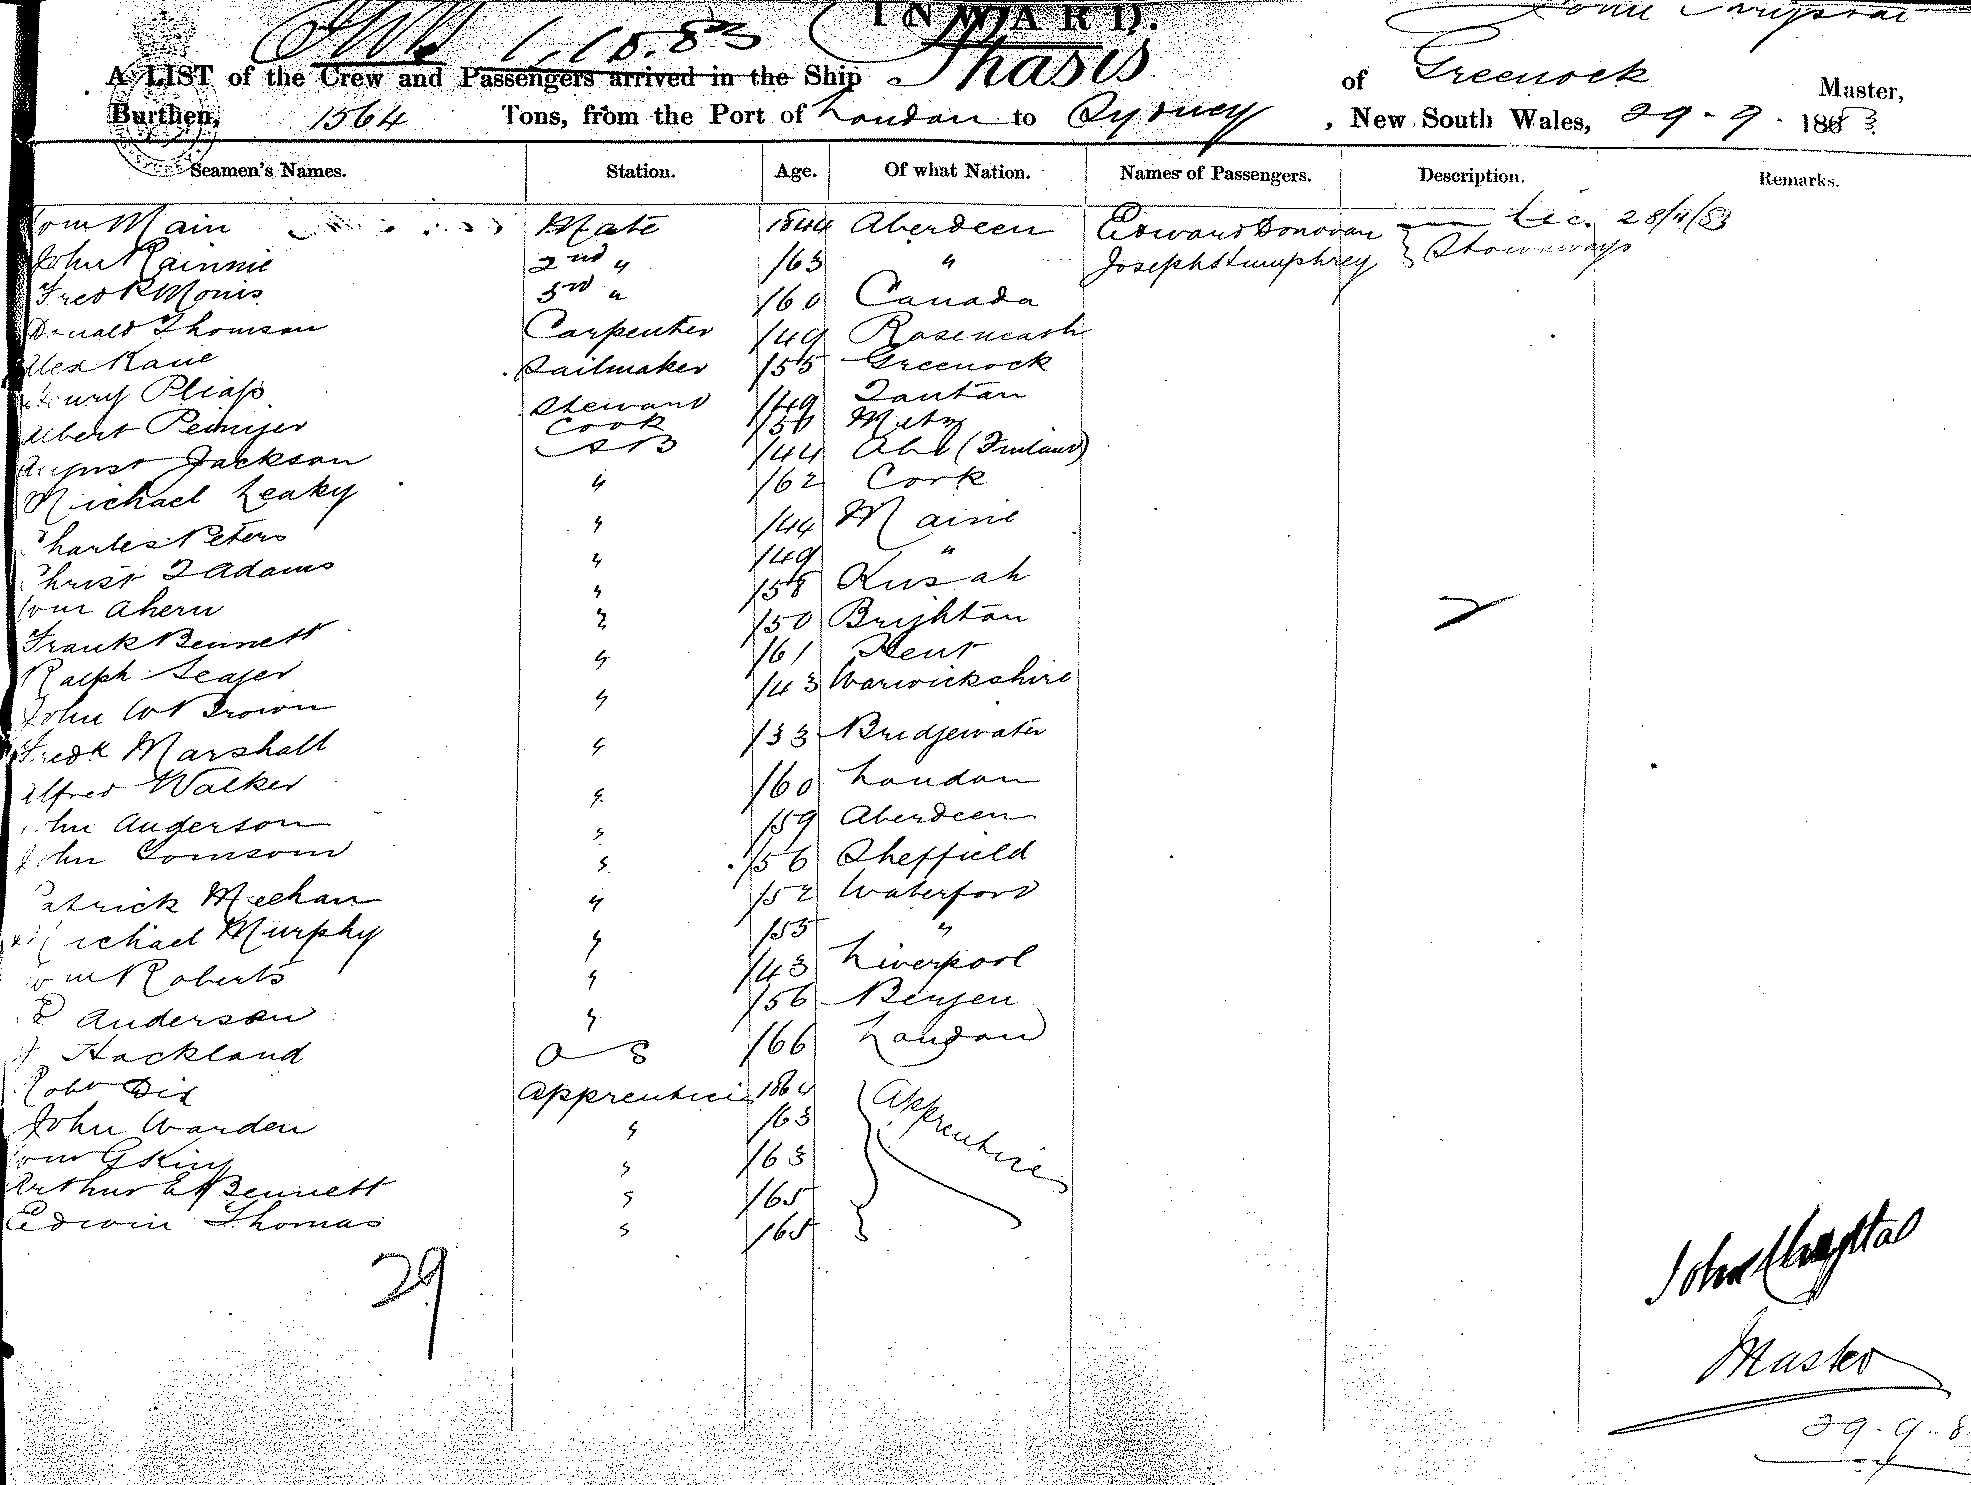 INWARD.
1.10.83
A LIST of the Crew and Passengers arrived in the Ship Phasis of Greenock Master,
Burthen, 1564 Tons, from the Port of London to Sydney, New South Wales, 29-9-1883
Seamen's Names. Station. Age. Of what Nation. Names of Passengers. Description. Remarks.
Wm Main Mate 1844 Aberdeen Edward Donovan Lic. 28/4/83
John Rainnie 2nd " /63 " Joseph Humphrey } Stowaways
Fredk Monis 3rd " /60 Canada
Donald Thomson Carpenter /49 Roseneath
Alex Kane Sailmaker /55 Greenock
Henry Steward /49
Albert Cook Metz
August Jackson AB /44 Abo (Finland)
Michael Leaky " /62 Cork
Charles Peters " /44 Maine
Christ Adams " /49 "
Wm Ahern " /58
Frank Bennett " /50 Brighton
Ralph Seager " /61 Kent
John W Brown " /43 Warwickshire
Fredk Marshall " /33 Bridgewater
Alfred Walker " /60 London
John Anderson " /59 Aberdeen
John Tomsom " /56 Sheffield
Patrick Meehan " /52 Waterford
Michael Murphy " /55 "
Wm Roberts " /43 Liverpool
Anderson " /56 Bergen
Hackland OS /66 London
Robt Dix Apprentice 1864 Apprentice
John Warden " /63
Wm G King " /63
Arthur E Bennett " /65
Edwin Thomas " /65
29
John Chrystal
Master
29-9-8